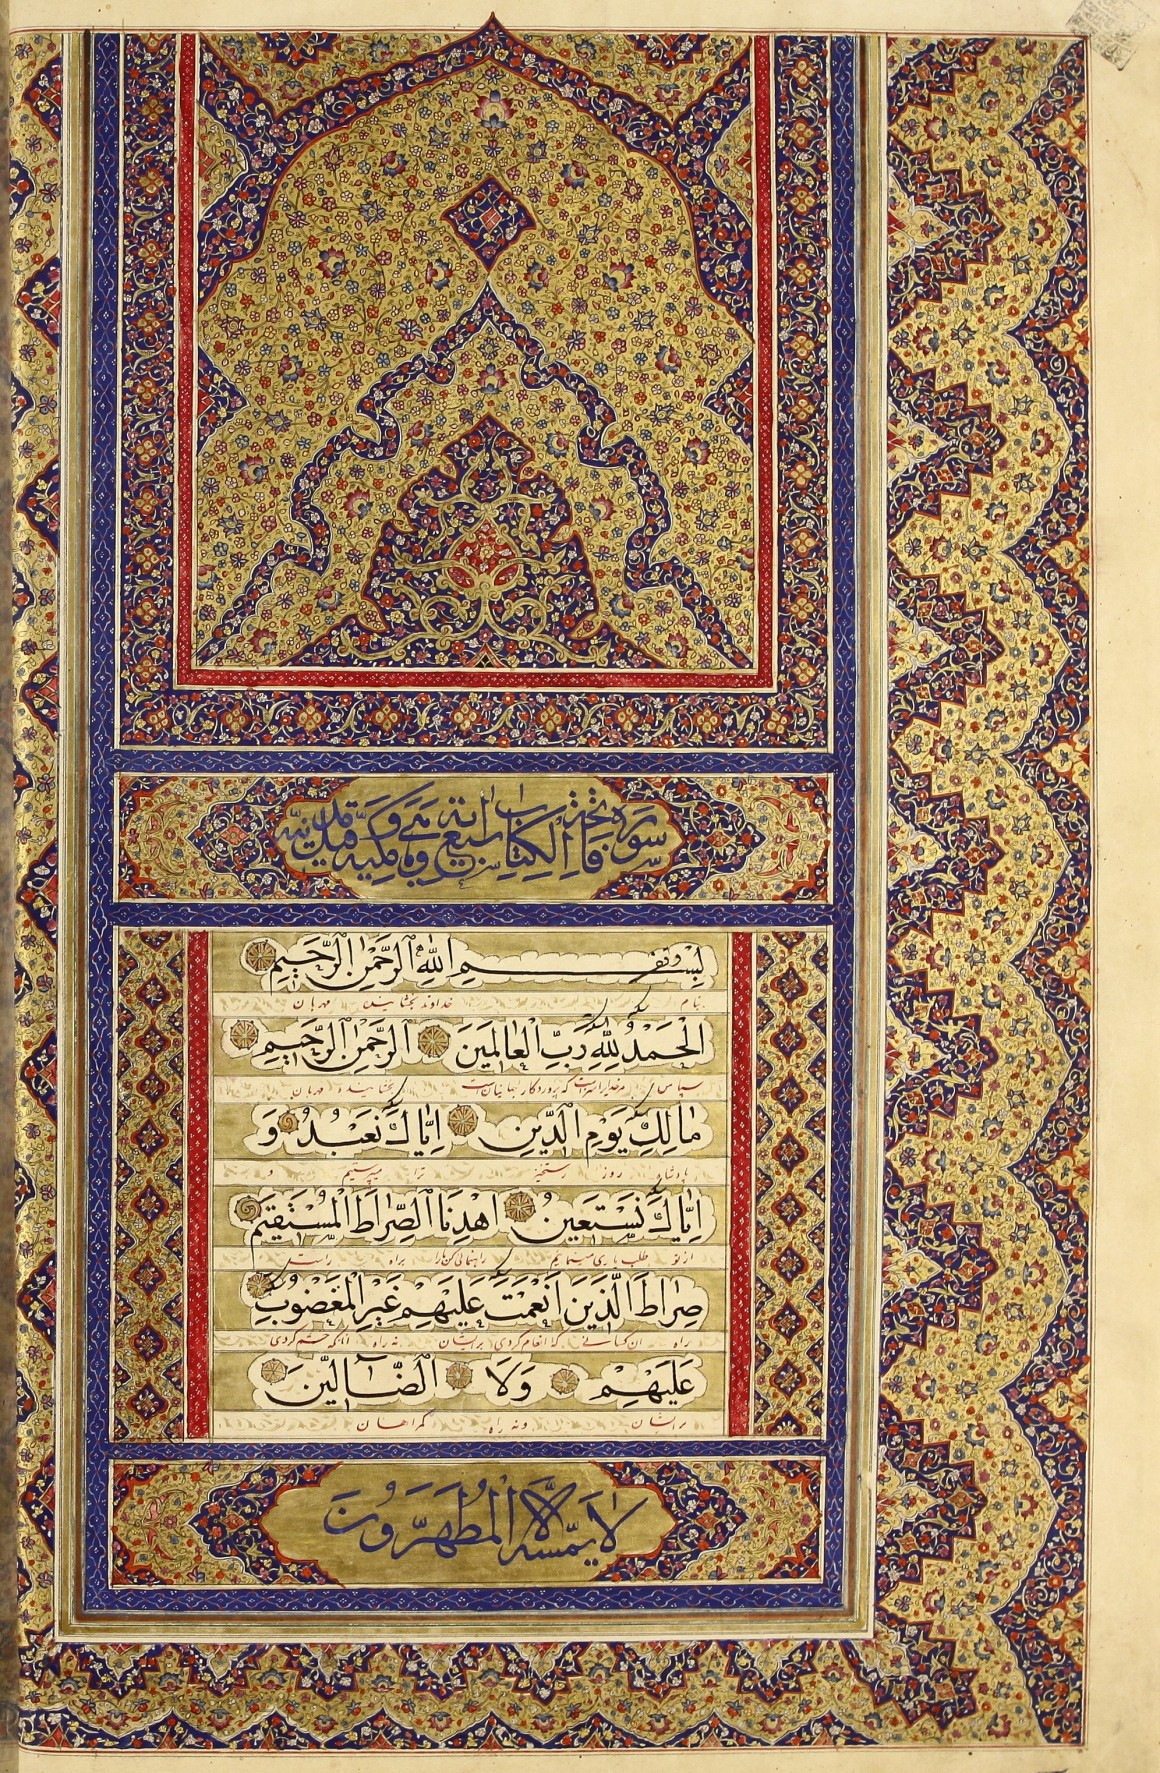 سورة فاتحة الكتاب سبع آيات وهي مكية وقيل مدنية
بِسْمِ اللّٰهِ الرَّحْمٰنِ الرَّحِيمِ
بنام خداوند بخشاینده مهربان
اَلْحَمْدُ لِلّٰهِ رَبِّ الْعَالَمِينَ الرَّحْمٰنِ الرَّحِيمِ
سپاس مر خدایراست که پروردگار جهانیانست بخشاینده مهربان
مَالِكِ يَوْمِ الدِّينِ اِيَّاكَ نَعْبُدُ وَ
پادشاه روز رستخیز ترا میپرستیم و
اِيَّاكَ نَسْتَعِينُ اِهْدِنَا الصِّرَاطَ الْمُسْتَقِيمَ
از تو طلب یاری مینمایم راهنمائی کن مارا براه راست
صِرَاطَ الَّذِينَ اَنْعَمْتَ عَلَيْهِمْ غَيْرِ الْمَغْضُوبِ
راه آن کسانی که انعام کردی بر ایشان نه راه آنانکه خشم کردی
عَلَيْهِمْ وَلَا الضَّآلِّينَ
بر ایشان و نه راه گمراهان
لَا يَمَسُّهُ اِلَّا الْمُطَهَّرُونَ